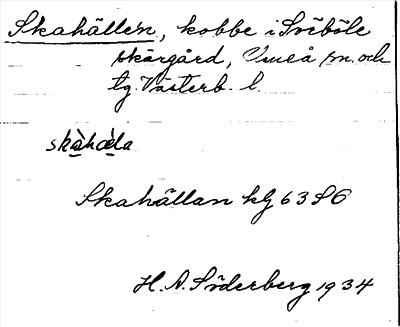 Skahällen, kobbe i Sviböle
skärgård, Umeå sn. och
tg. Västerb. l.
skàhæ̀la
Skahällan kg 63 S6
H. A. Söderberg 1934